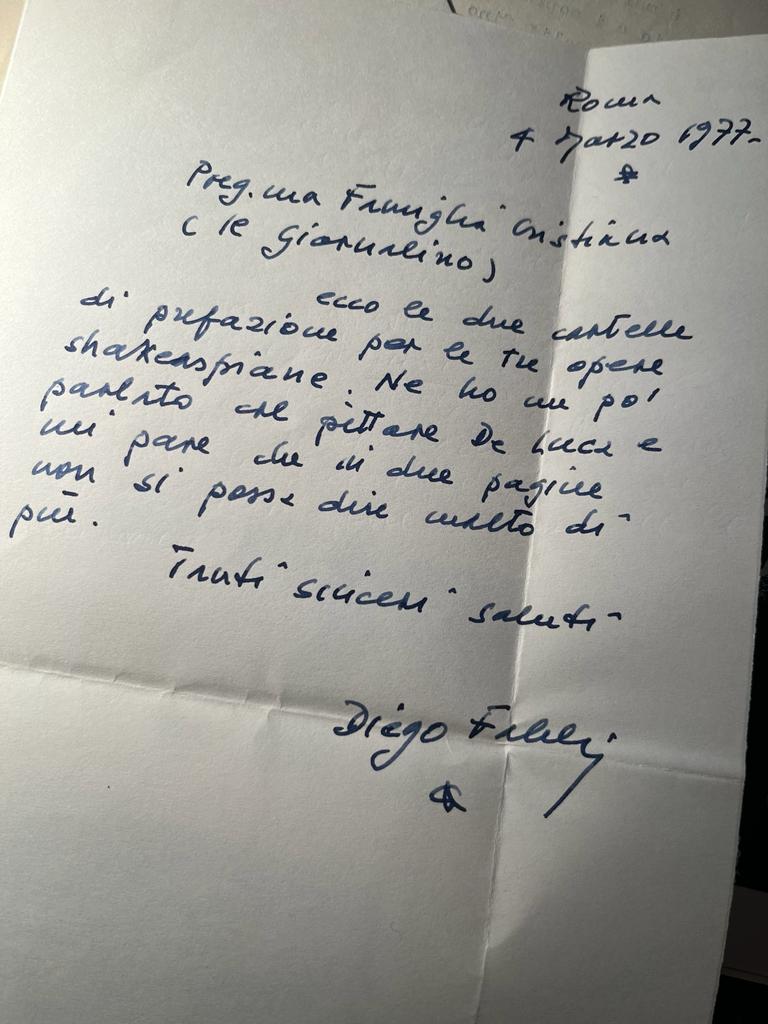 Roma
4 Marzo 1977-
Preg.ma Famiglia Cristiana
(Il Giornalino)
ecco le due cartelle
di prefazione per le tre opere
shakespiane. Ne ho un po'
parlato col pittore De Luca e
mi pare che in due pagine
non si possa dire molto di
più.
Tanti sinceri saluti
Diego Fabbri